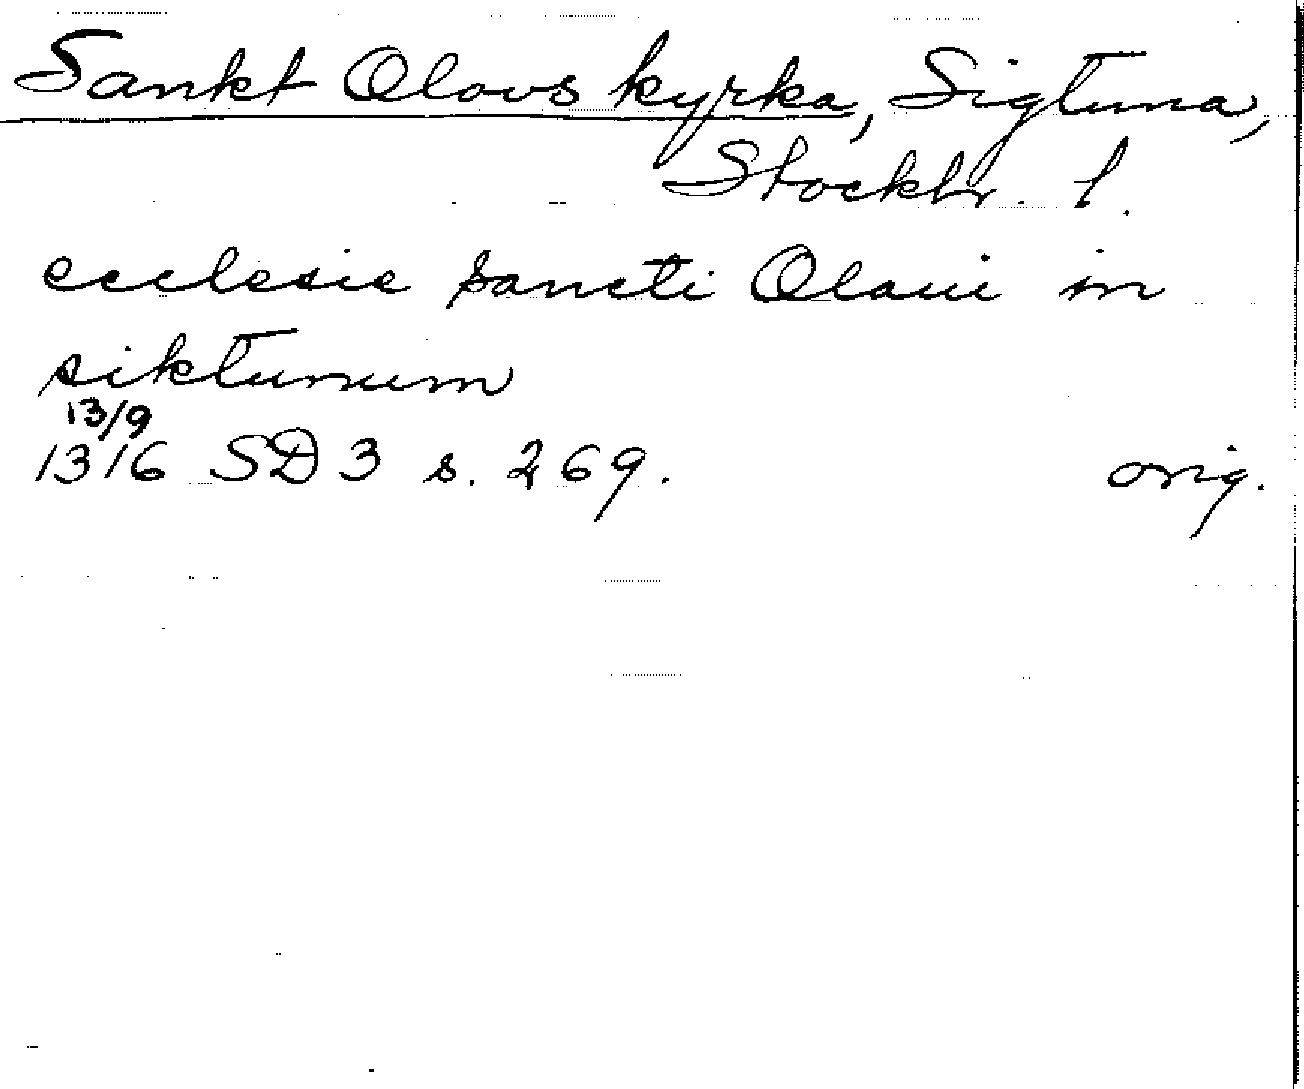 Sankt Olovs kyrka, Sigtuna,
Stockh. l.
ecclesie sancti Olaui in
siktunum
13/9
1316 SD 3 s. 269.
orig.